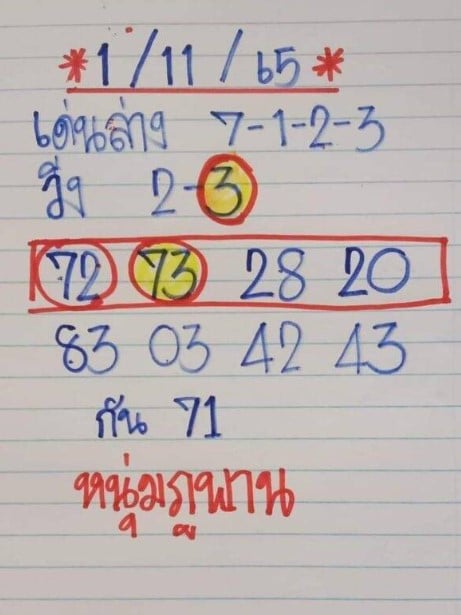 *1/11/65*
เด่นล่าง 7-1-2-3
วิ่ง 2-3
72 73 28 20
83 03 42 43
กัน 71
หนุ่มภูพาน